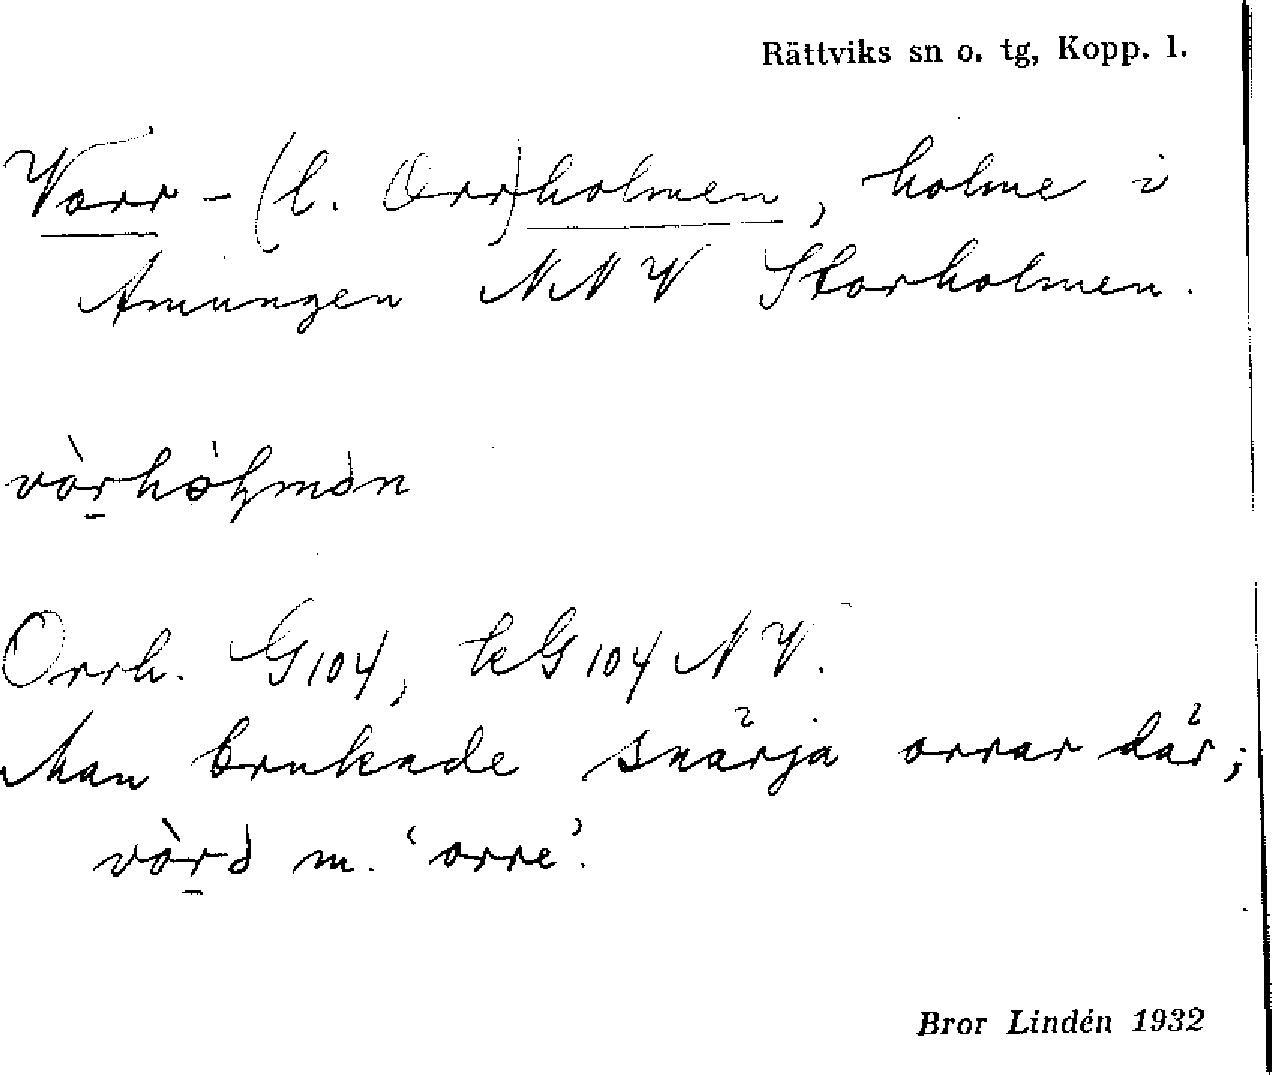 Rättviks sn o. tg, Kopp. l.
Vorr-(l. Orr)holmen, holme i
Amungen NNV Storholmen.
Orrh. G104, kG104 NV.
Man brukade snärja orrar där;
m. 'orre'.
Bror Lindén 1932